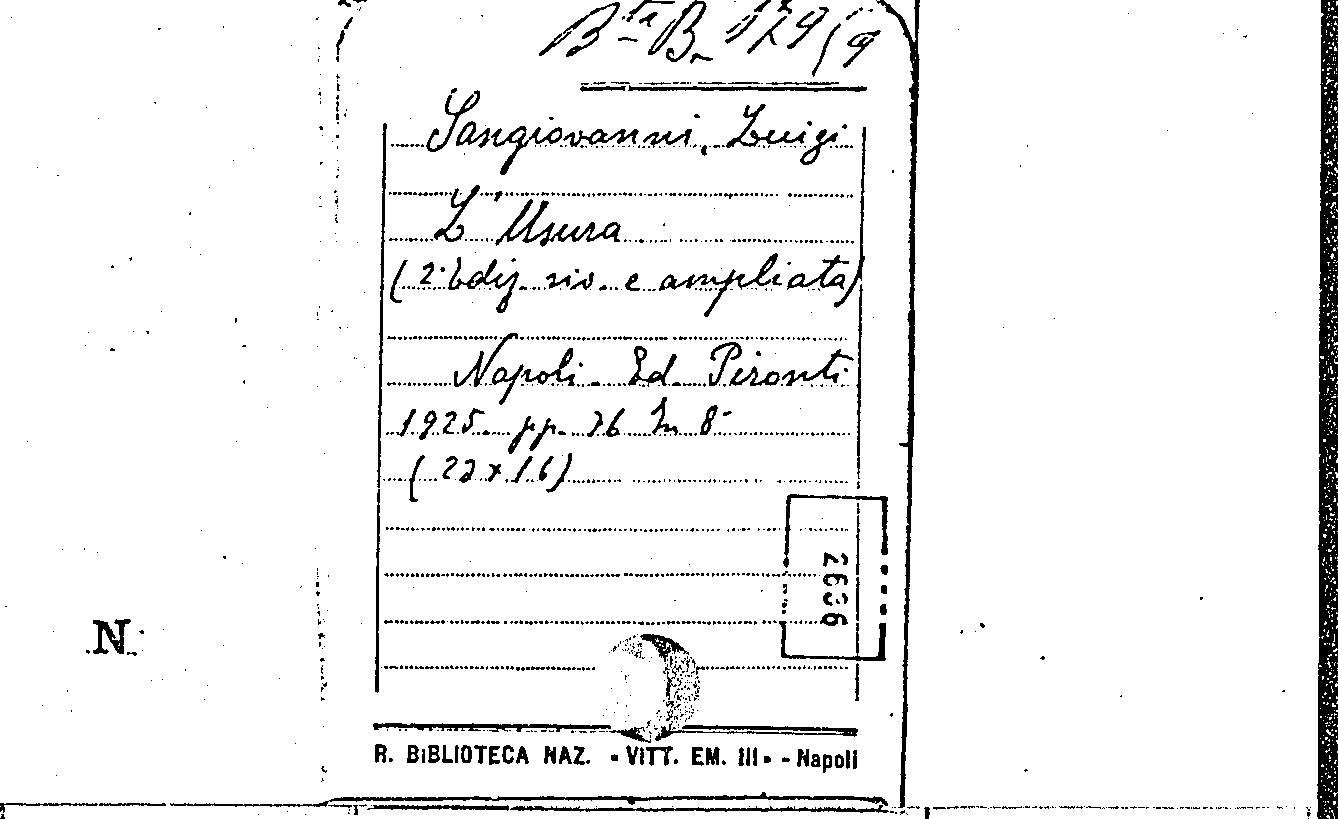 Bta B. 129(9
Sangiovanni, Luigi
L'Usura
(2.ª Ediz. riv. e ampliata)
Napoli. Ed. Pironti
1925. pp. 76 In 8°
(22 x 16)
2696
N.
R. BIBLIOTECA NAZ. - VITT. EM. III - - Napoli